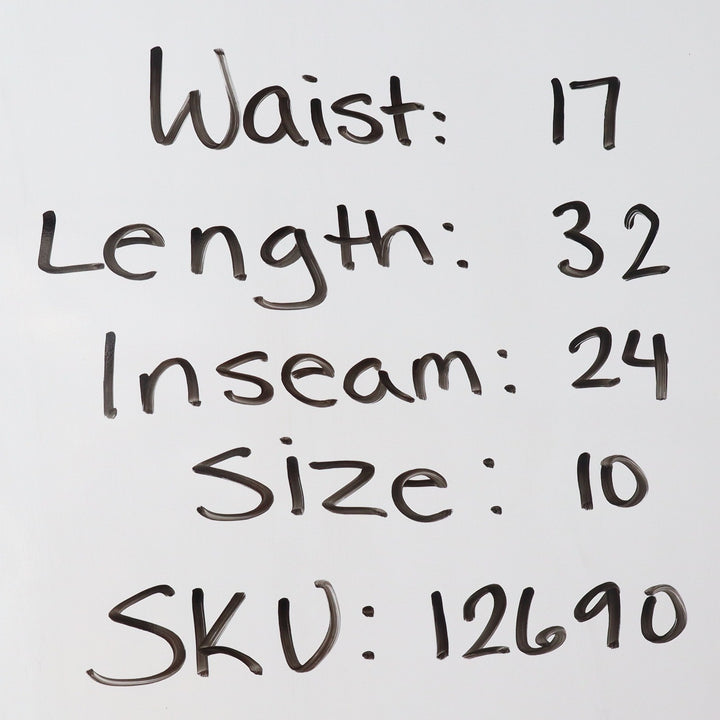 Waist: 17
Length: 32
Inseam: 24
Size: 10
SKU: 12690